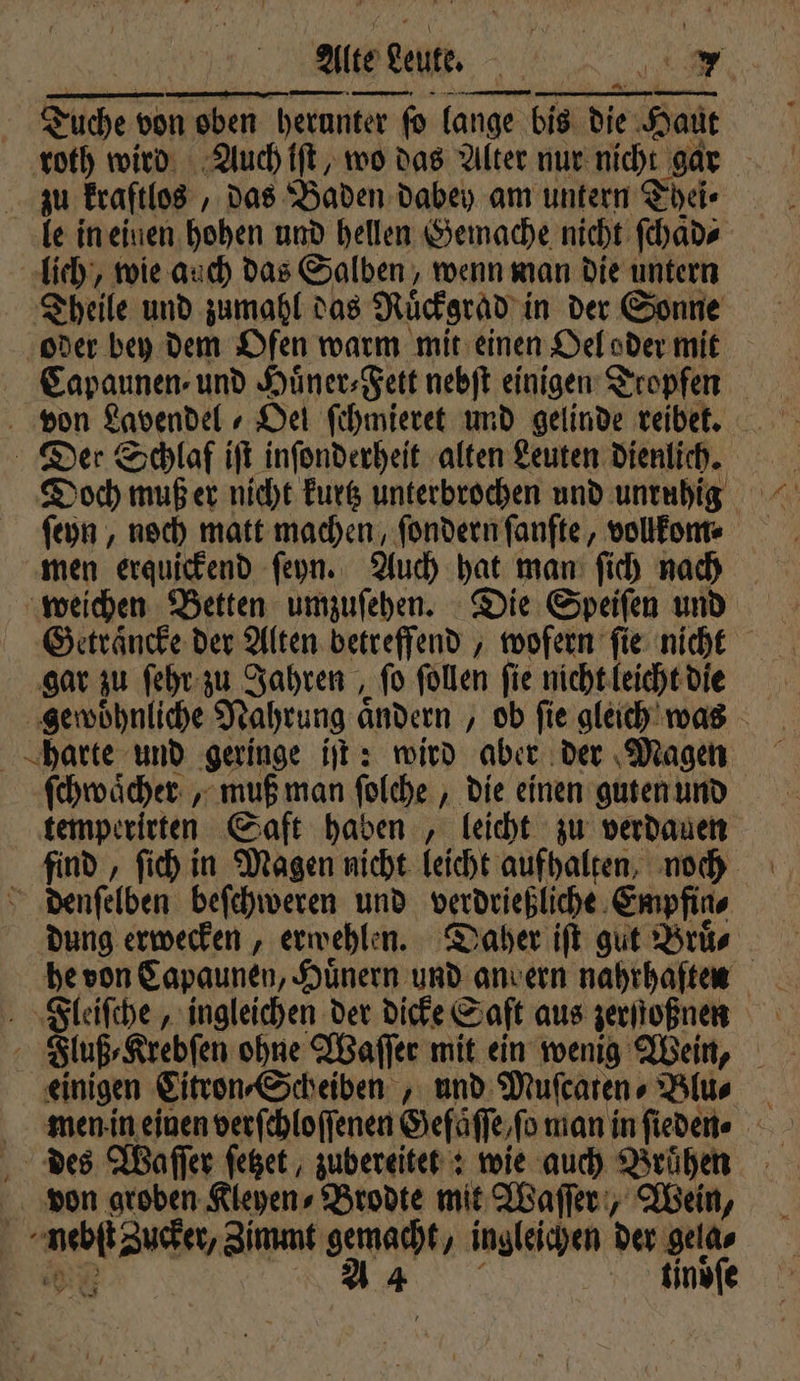 Alte Leute. 7
Tuche von oben herunter ſo lange bis die Haut
roth wird Auch iſt, wo das Alter nur nicht gar
zu kraftlos, das Baden dabey am untern Thei-
le in einen hohen und hellen Gemache nicht ſchaͤd-
lich, wie auch das Salben, wenn man die untern
Theile und zumahl das Ruͤckgrad in der Sonne
oder bey dem Ofen warm mit einen Oel oder mit
Capaunen- und Huͤner-Fett nebſt einigen Tropfen
von Lavendel-Oel ſchmieret und gelinde reibet.
Der Schlaf iſt inſonderheit alten Leuten dienlich.
Doch muß er nicht kurtz unterbrochen und unruhig
ſeyn, noch matt machen, ſondern ſanfte, vollkom-
men erquickend ſeyn. Auch hat man ſich nach
weichen Betten umzuſehen. Die Speiſen und
Getraͤncke der Alten betreffend, wofern ſie nicht
gar zu ſehr zu Jahren, ſo ſollen ſie nicht leicht die
gewoͤhnliche Nahrung aͤndern, ob ſie gleich was
harte und geringe iſt: wird aber der Magen
ſchwaͤcher, muß man ſolche, die einen guten und
temperirten Saft haben, leicht zu verdauen
ſind, ſich in Magen nicht leicht aufhalten, noch
denſelben beſchweren und verdrießliche Empfin-
dung erwecken, erwehlen. Daher iſt gut Bruͤ-
he von Capaunen, Huͤnern und andern nahrhaften
Fleiſche, ingleichen der dicke Saft aus zerſtoßnen
Fluß-Krebſen ohne Waſſer mit ein wenig Wein,
einigen Citron-Scheiben, und Muſcaten-Blu-
men in einen verſchloſſenen Gefaͤſſe, ſo man in ſieden-
des Waſſer ſetzet, zubereitet: wie auch Bruͤhen
von groben Kleyen-Brodte mit Waſſer, Wein,
nebſt Zucker, Zimmt gemacht, ingleichen der gela-
A 4 tinoͤſe